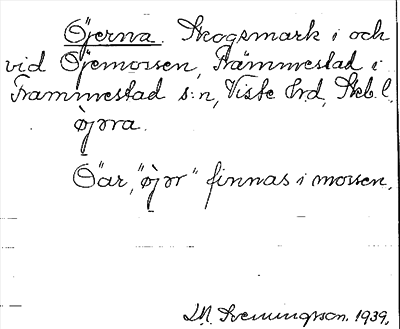 Öjerna. Skogsmark i och
vid Öjemossen, Främmestad i
Frammestad s:n, Viste hrd, Skb. l.
öjɷra.
Öar, "öjɷr" finnas i mossen.
D.N. Svenungsson. 1939.